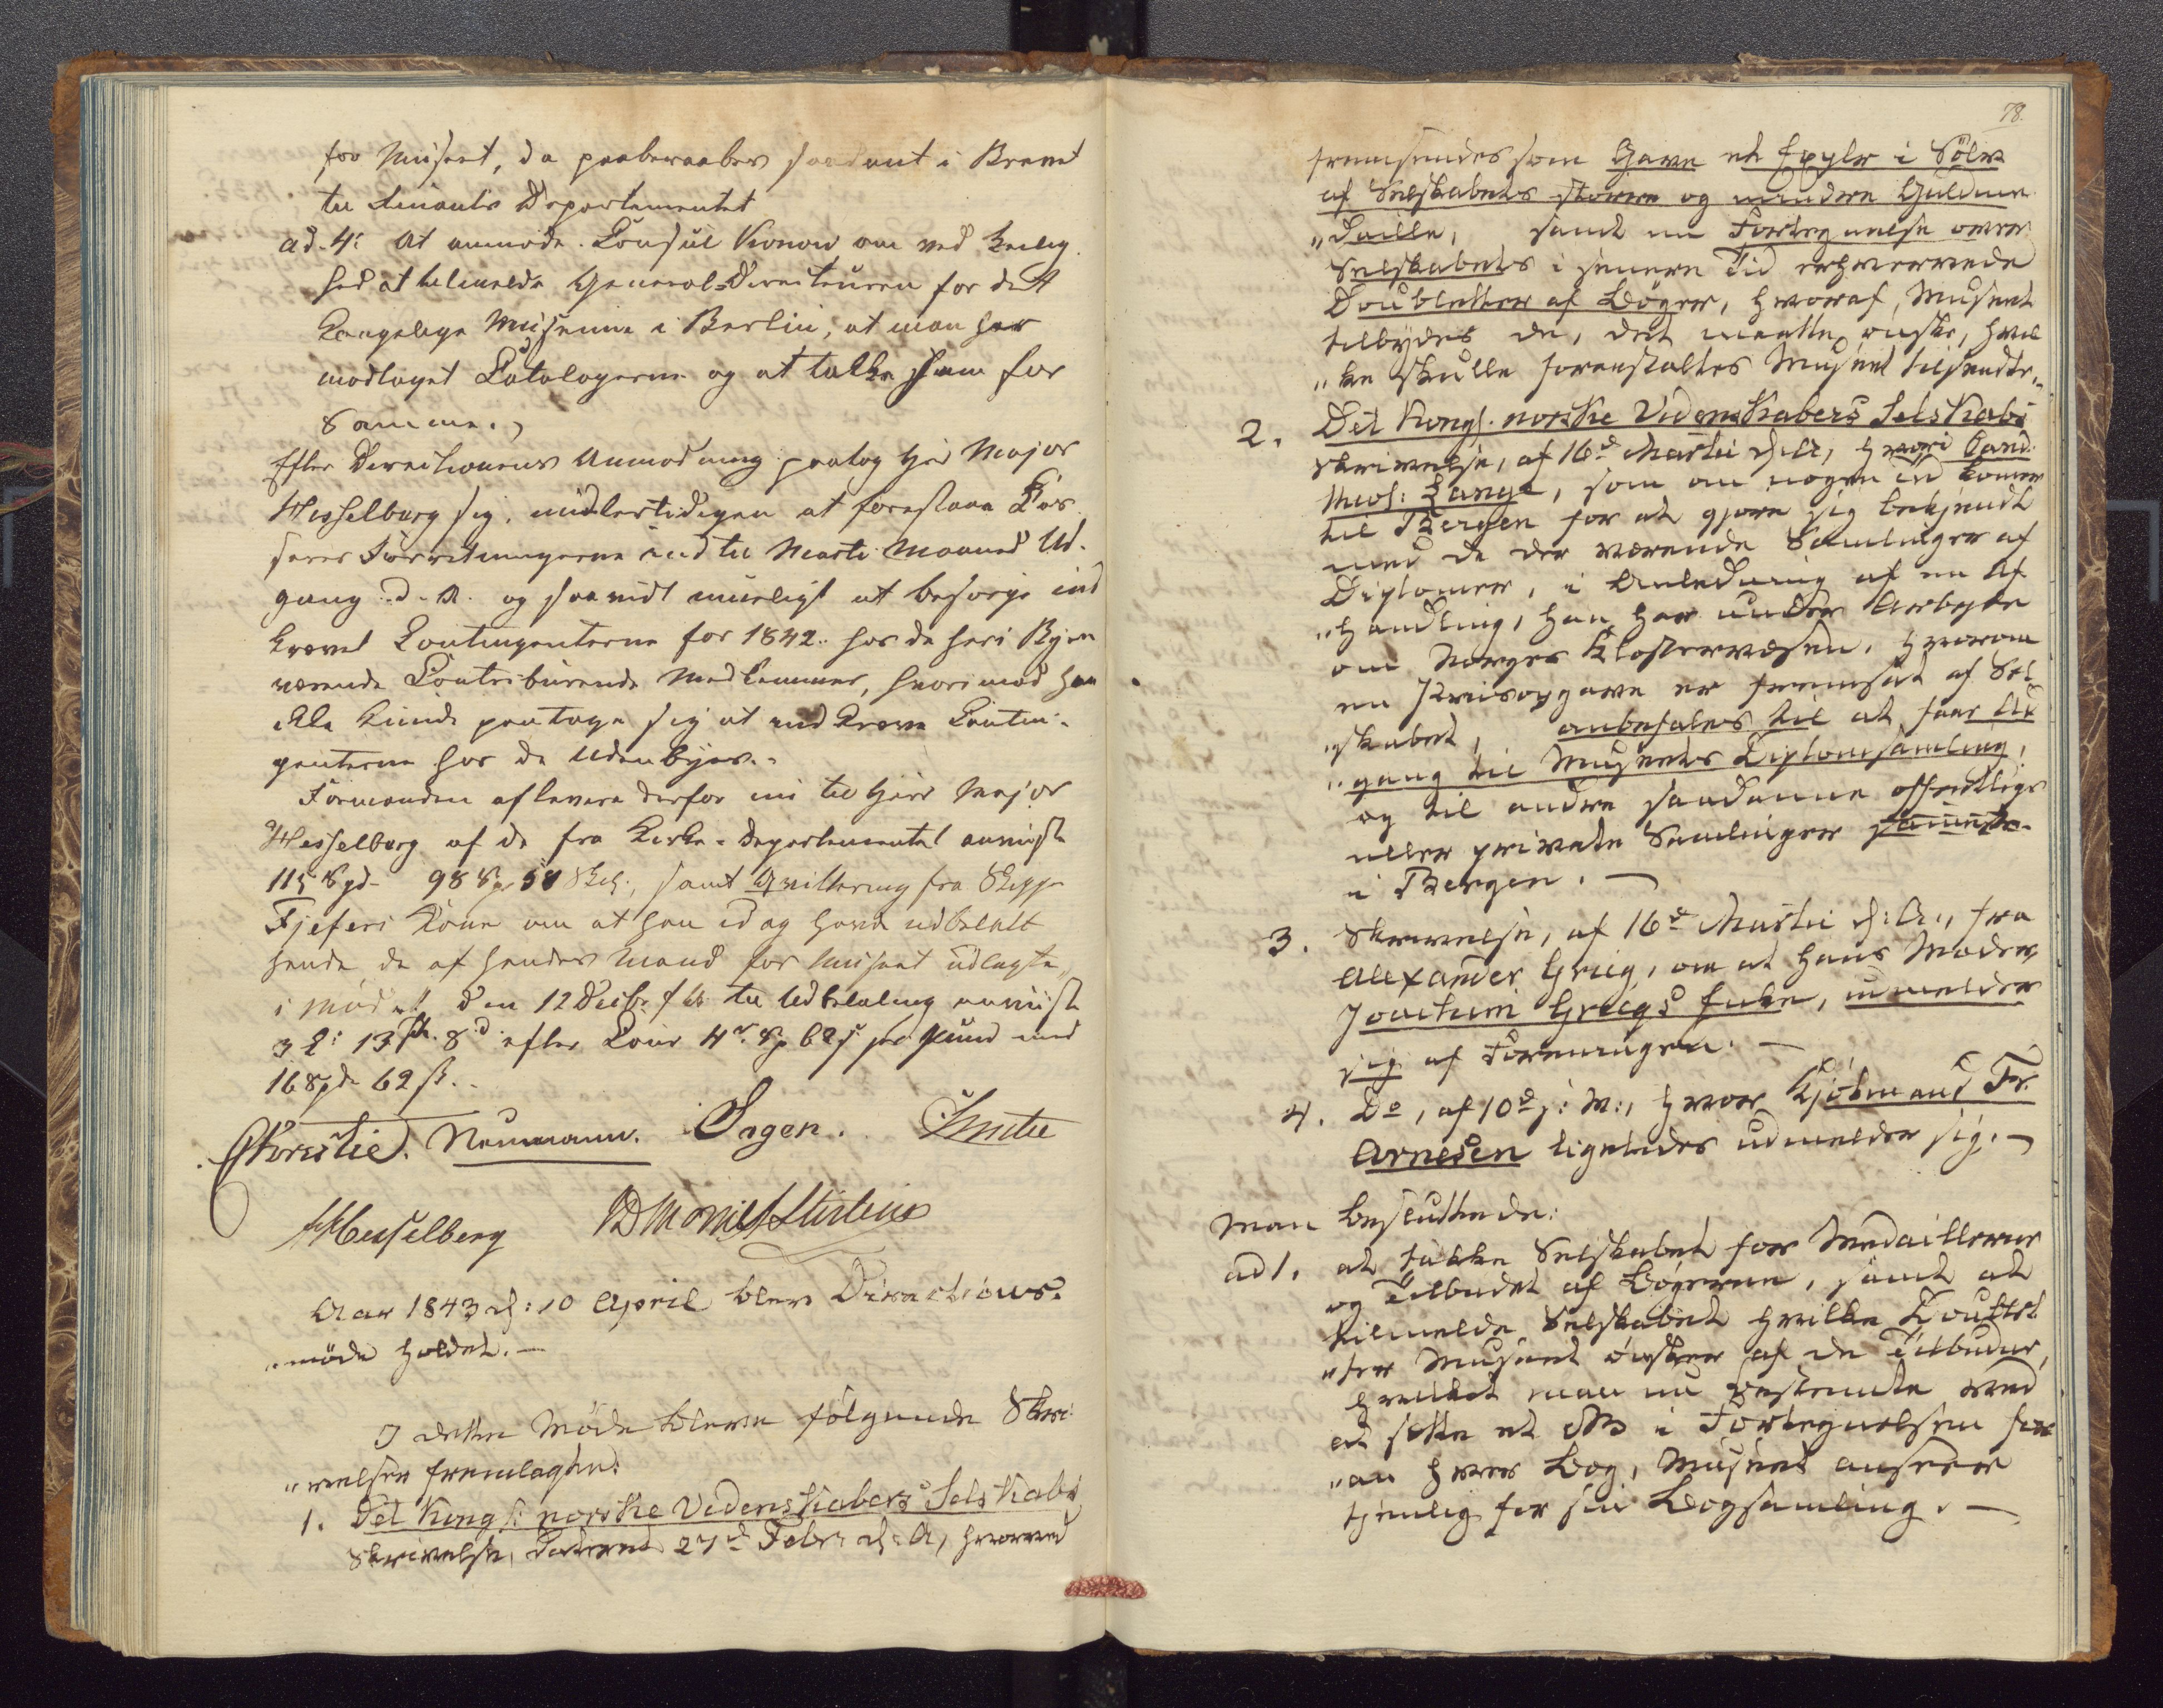 for Museet, da paaberaabes saadant i Brevet
til Finants Departementet
ad. 4: At anmode Consul Konow om ved Leilig
hed at tilmelde General-Directeuren for det
Kongelige Museum i Berlin, at man har
modtaget Catalogerne og at takke ham for
Samme.,
Efter Directionens Anmodning paatog Hr: Major
Hesselberg sig, midlertidigen at forestaae Cas
serer Forretningerne ind til Marti Maaned Ud-
gang d. A. og saavidt mueligt at besørge ind
krævet Contingenterne for 1842. hos de her i Byen
værende Contribuerende Medlemmer, hvorimod han
ikke kunde paatage sig at indkræve Contin-
genterne hos de Udenbyes.-
Formanden aflevere derfor nu til Herr Major
Hesselberg af de fra Kirke-Departementet anviiste
115 Spd- 98 Sp 58 Sk:, samt Qvittering fra Skipp
Fjeferi Kone om at han idag have udbetalt
hende de af hendes Mand for Museet udlagte
i Mødet den 12 Decbr f. A. til Udbetaling anviiste
3 £: 13 sh. 8 d. efter Cours 4 Sp 62 s pr Pund med
16 Spd 62 ß..
Christie. Neumann. Sagen. Smitu
Hesselberg
Aar 1843 d: 10 April blev Directions-
"møde holdet.-
I dette Møde bleve følgende Skri-
"velser fremlagte:
1. Det Kongl: norske Videnskabers Selskabs
Skrivelse, dateret 27d Febr: d: A, hvorved
78.
fremsendes som Gave et Expl: i Sølv
af Selskabets større og mindre Guldme
"daille, samt en Fortegnelse over
Selskabets i senere Tid erhvervede
Doubletter af Bøger, hvoraf Museet
tilbydes de, det maatte ønske, hvil
"ke skulle foranstaltes Museet tilsendte.-
2. Det Kongl. norske Videnskabers Selskabs
Skrivelse, af 16d Martii d: A, hvori Cand:
theol: Lange, som om nogen Tid kommer
til Bergen for at gjøre sig bekjendt
med de der værende Samlinger af
Diplomer, i Anledning af en Af
"handling, han har under Arbeyde
om Norges Klostervæsen, hvorom
en Priisopgave er fremsat af Sel
"skabet, anbefales til at faae Ad
"gang til Museets Diplomsamling,
og til andre saadanne offentlige
eller private Samlinger sammesteds
i Bergen.-
3. Skrivelse, af 16d Martii d: A:, fra
Alexander Grieg, om at hans Moder,
Joachim Griegs Enke, udmelder
sig af Foreningen.-
4. Do, af 10d d: M:, hvor Kjøbmand Fr.
Arnesen ligeledes udmelder sig.-
Man besluttede:
ad 1. at takke Selskabet for Medaillerne
og Tilbudet af Bøgerne, samt at
tilmelde Selskabet hvilke Doublet
"ter Museet ønsker af de Tilbudne,
hvilket man nu bestemte ved
at sætte et NB i Fortegnelsen for
"an hver Bog, Museet ansees
tjenlig for sin Bogsamling.-